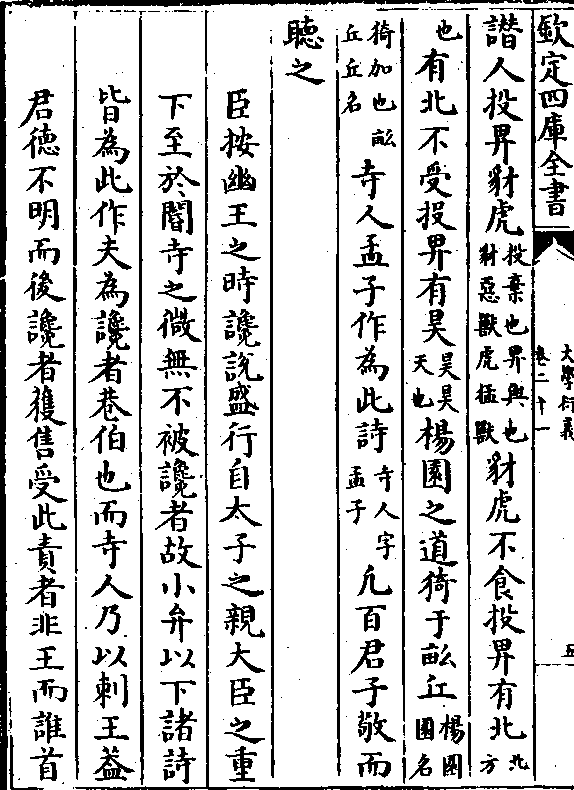 欽定四庫全書
大學衍義
卷二十一
五
譛人投畀豺虎投棄也畀與也豺惡獸虎猛獸豺虎不食投畀有北北方
也有北不受投畀有昊昊昊天也楊園之道猗于畝丘楊園園名
猗加也畝丘丘名寺人孟子作為此詩寺人字孟子凡百君子敬而
聽之
臣按幽王之時讒說盛行自太子之親大臣之重
下至於閽寺之微無不被讒者故小弁以下諸詩
皆為此作夫為讒者巷伯也而寺人乃以刺王葢
君徳不明而後讒者獲售受此責者非王而誰首